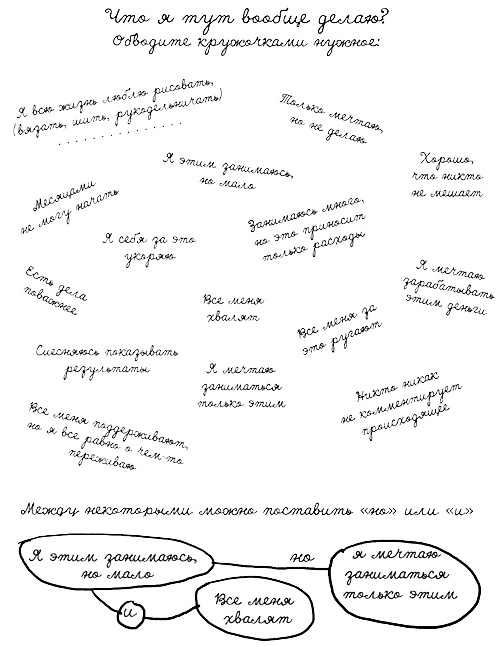 Что я тут вообще делаю?
Обводите кружочками нужное:
Я всю жизнь люблю рисовать,
(вязать, шить, рукодельничать)
. . . . . . . . . . . . . .
Только мечтаю,
но не делаю
Я этим занимаюсь,
но мало
Хорошо,
что никто
не мешает
Месяцами
не могу начать
Занимаюсь много,
но это приносит
только расходы
Я себя за это
укоряю
Есть дела
поважнее
Я мечтаю
зарабатывать
этим деньги
Все меня
хвалят
Все меня за
это ругают
Стесняюсь показывать
результаты
Я мечтаю
заниматься
только этим
Никто никак
не комментирует
происходящее
Все меня поддерживают,
но я все равно о чем-то
переживаю
Между некоторыми можно поставить «но» или «и»
Я этим занимаюсь,
но мало
но
я мечтаю
заниматься
только этим
и
Все меня
хвалят